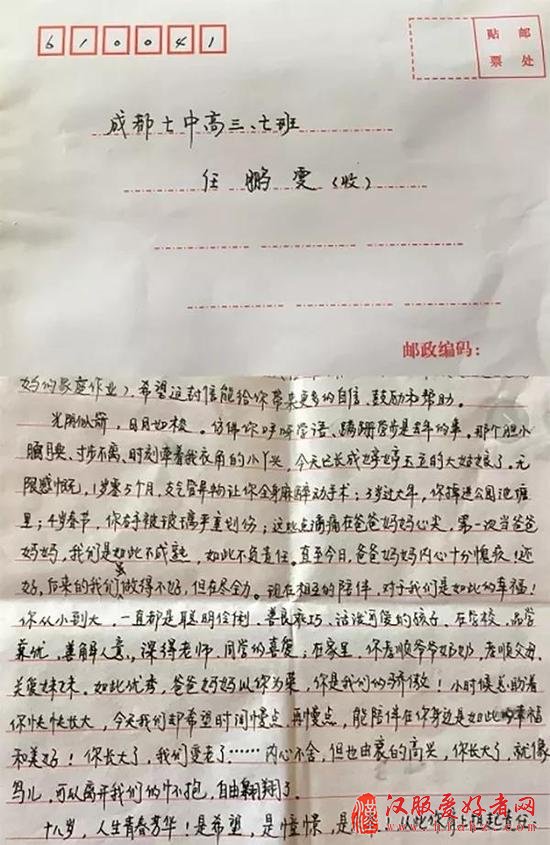 610041
贴 邮
票 处
成都七中高三、七班
任 鹏 雯（收）
邮政编码：
妈的家庭作业），希望这封信能给你带来更多的自信、鼓励和帮助。
光阴似箭，日月如梭。仿佛你呼呀学语、蹒跚学步是去年的事。那个胆小
腼腆、寸步不离、时刻牵着我衣角的小丫头，今天已长成婷婷玉立的大姑娘了。无
限感慨，1岁零5个月，支气管异物让你全身麻醉动手术；3岁过大年，你掉进公园池塘
里；4岁春节，你右手被玻璃严重划伤；这些点滴痛在爸爸妈妈心尖，第一次当爸爸
妈妈，我们是如此不成熟，如此不负责任。直至今日，爸爸妈妈内心十分愧疚！还
好，后来的我们做得不好，但在尽全力。现在相互的陪伴，对于我们是如此的幸福！
你从小到大，一直都是聪明伶俐、善良乖巧、活泼可爱的孩子，在学校，品学
兼优，善解人意，深得老师、同学的喜爱；在家里，你孝顺爷爷奶奶，孝顺父母，
关爱妹妹。如此优秀，爸爸妈妈以你为荣，你是我们的骄傲！小时候总盼着
你快快长大，今天我们却希望时间慢点，再慢点，能陪伴在你身边是如此幸福
和美好！你长大了，我们变老了……内心不舍，但也由衷的高兴，你长大了，就像
鸟儿，可以离开我们的怀抱，自由翱翔了。
十八岁，人生青春芳华！是希望，是憧憬，是
从此你肩上担起责任
汉服爱好者网